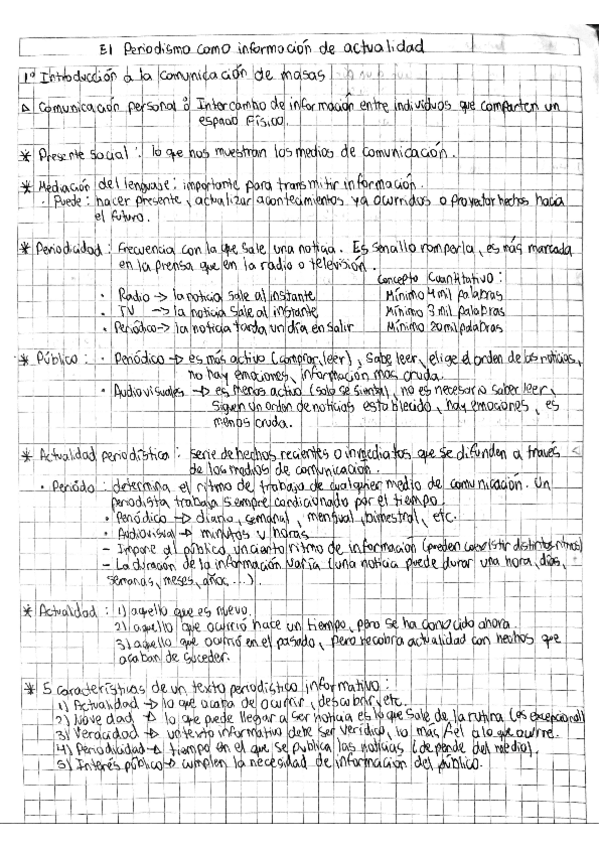 El Periodismo como información de actualidad
1º Introducción a la comunicación de masas
Comunicación personal: Intercambio de información entre individuos que comparten un
espacio físico.
* Presente social: lo que nos muestran los medios de comunicación.
* Mediación del lenguaje: importante para transmitir información.
· Puede: hacer presente, actualizar acontecimientos ya ocurridos o proyectar hechos hacia
el futuro.
* Periodicidad: frecuencia con la que sale una noticia. Es sencillo romperla, es más marcada
en la prensa que en la radio o televisión.
Concepto Cuantitativo:
· Radio -> la noticia sale al instante Mínimo 4 mil palabras
· TV -> la noticia sale al instante Mínimo 3 mil palabras
· Periódico -> la noticia tarda un día en salir Mínimo 20 mil palabras
* Público: · Periódico -> es más activo (comprar, leer), sabe leer, elige el orden de las noticias,
no hay emociones, información más cruda.
· Audiovisuales -> es menos activo (solo se sienta), no es necesario saber leer,
siguen un orden de noticias establecido, hay emociones, es
menos cruda.
* Actualidad periodística: serie de hechos recientes o inmediatos que se difunden a través
de los medios de comunicación.
· Periódo: determina el ritmo de trabajo de cualquier medio de comunicación. Un
periodista trabaja siempre condicionado por el tiempo.
· Periódico -> diario, semanal, mensual, bimestral, etc.
· Audiovisual -> minutos u horas
- Impone al público un cierto ritmo de información (pueden coexistir distintos ritmos)
- La duración de la información varía (una noticia puede durar una hora, días,
semanas, meses, años, ...).
* Actualidad: 1) aquello que es nuevo.
2) aquello que ocurrió hace un tiempo, pero se ha conocido ahora.
3) aquello que ocurrió en el pasado, pero recobra actualidad con hechos que
acaban de suceder.
* 5 características de un texto periodístico informativo:
1) Actualidad -> lo que acaba de ocurrir, descubrir, etc.
2) Novedad -> lo que puede llegar a ser noticia es lo que sale de la rutina (es excepcional)
3) Veracidad -> un texto informativo debe ser verídico, lo más fiel a lo que ocurre.
4) Periodicidad -> tiempo en el que se publica las noticias (depende del medio).
5) Interés público -> cumplen la necesidad de información del público.